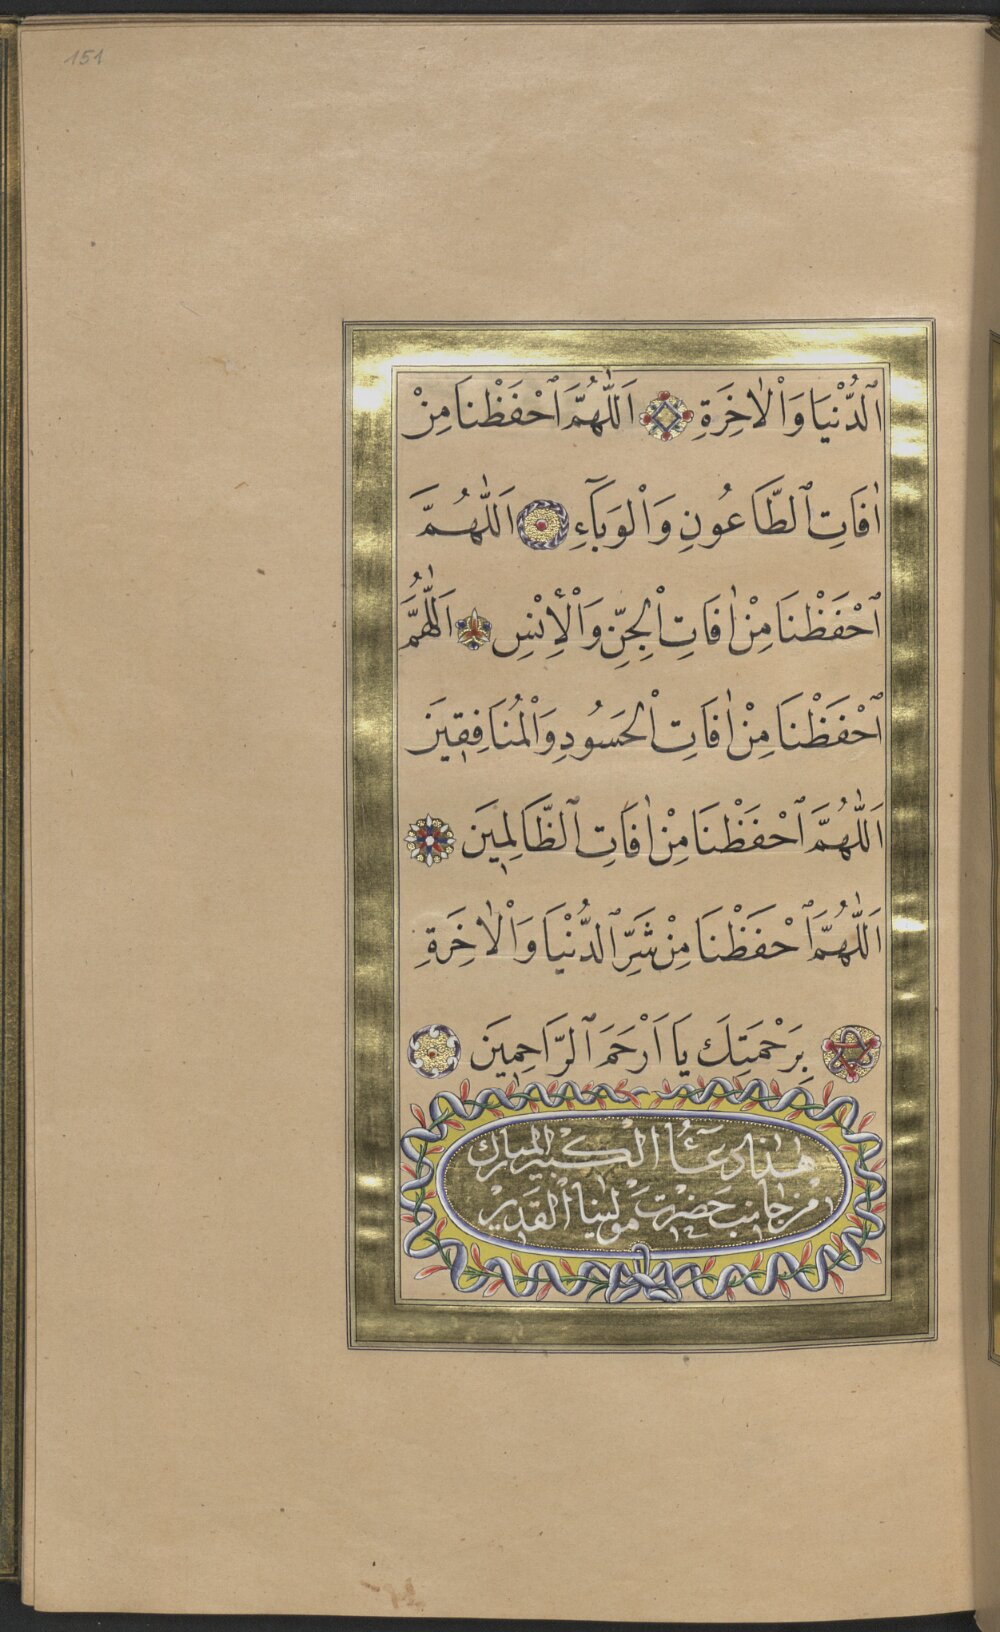 151
ٱلدُّنْيَا وَاْلاٰخِرَةِ اَللّٰهُمَّ ٱحْفَظْنَا مِنْ
اٰفَاتِ ٱلطَّاعُونِ وَاْلوَبَآءِ اَللّٰهُمَّ
ٱحْفَظْنَا مِنْ اٰفَاتِ اْلجِنِّ وَاْلأِنْسِ اَللّٰهُمَّ
ٱحْفَظْنَا مِنْ اٰفَاتِ اْلحَسُودِ وَاْلمُنَافِقِينَ
اَللّٰهُمَّ ٱحْفَظْنَا مِنْ اٰفَاتِ ٱلظَّالِمِينَ
اَللّٰهُمَّ ٱحْفَظْنَا مِنْ شَرِّ ٱلدُّنْيَا وَاْلاٰخِرَةِ
بِرَحْمَتِكَ يَا اَرْحَمَ ٱلرَّاحِمِينَ
هٰذا دُعَآئُا الْكَبير المبارك
مِنْ جانب حَضْرَتْ مَوْلٰينا الْقَديرْ